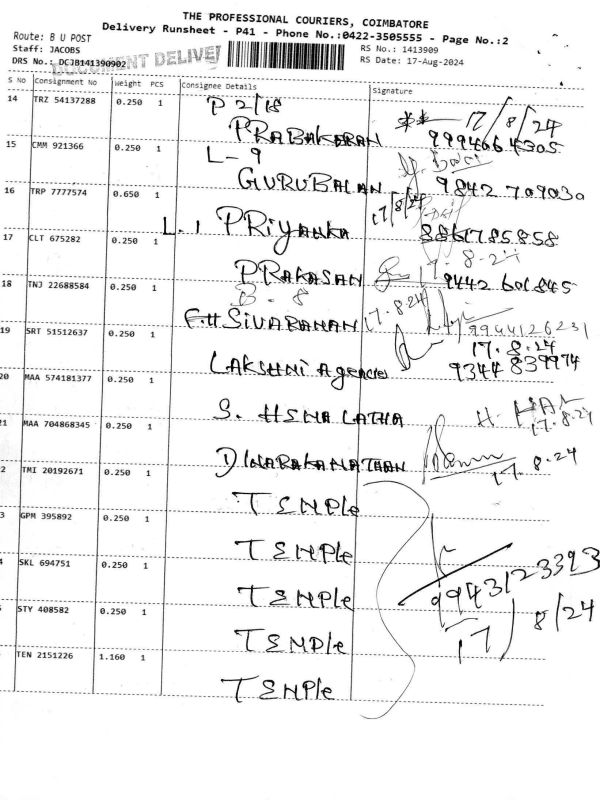 THE PROFESSIONAL COURIERS, COIMBATORE
Delivery Runsheet - P41 - Phone No.:0422-3505555 - Page No.:2
Route: B U POST
Staff: JACOBS
RS No.: 1413909
DRS No.: DCJB141390902
DOCUMENT DELIVE
RS Date: 17-Aug-2024
S No Consignment No Weight PCS Consignee Details Signature
14 TRZ 54137288 0.250 1 P 2/18 17/8/24
PRABAKARAN 9994664305
15 CMM 921366 0.250 1 L-9
GURUBALAN 9842709030
16 TRP 7777574 0.650 1 17/8/24
L.1 PRIYANKA 8861785858
17 CLT 675282 0.250 1 17.8.24
PRAKASAN 9442601845
18 TNJ 22688584 0.250 1 B-8 17.8.24
F.H SIVARAMAN 9944126231
19 SRT 51512637 0.250 1 17.8.24
LAKSHMI Agencies 9344839974
20 MAA 574181377 0.250 1
S. HEMA LATHA 17.8.24
21 MAA 704868345 0.250 1
DWARAKANATHAN 17.8.24
2 TMI 20192671 0.250 1
TEMPle
3 GPM 395892 0.250 1
TEMPle
4 SKL 694751 0.250 1 9943123393
TEMPle
STY 408582 0.250 1 17/8/24
TEMPle
TEN 2151226 1.160 1
TEMPle